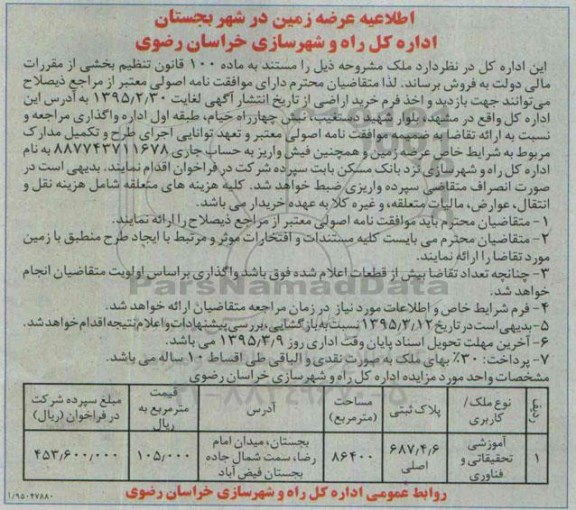 اطلاعیه عرضه زمین در شهر بجستان
اداره کل راه و شهرسازی خراسان رضوی
این اداره کل در نظر دارد ملک مشروحه ذیل را مستند به ماده ۱۰۰ قانون تنظیم بخشی از مقررات
مالی دولت به فروش برساند. لذا متقاضیان محترم دارای موافقت نامه اصولی معتبر از مراجع ذیصلاح
می‌توانند جهت بازدید و اخذ فرم خرید اراضی از تاریخ انتشار آگهی لغایت ۱۳۹۵/۲/۳۰ به آدرس این
اداره کل واقع در مشهد، بلوار شهید دستغیب، نبش چهارراه خیام، طبقه اول اداره واگذاری مراجعه و
نسبت به ارائه تقاضا به ضمیمه موافقت نامه اصولی معتبر و تعهد توانایی اجرای طرح و تکمیل مدارک
مربوط به شرایط خاص عرضه زمین و همچنین فیش واریز به حساب جاری ۸۸۷۷۴۳۷۱۱۶۷۸ به نام
اداره کل راه و شهرسازی نزد بانک مسکن بابت سپرده شرکت در فراخوان اقدام نمایند. بدیهی است در
صورت انصراف متقاضی سپرده واریزی ضبط خواهد شد. کلیه هزینه های متعلقه شامل هزینه نقل و
انتقال، عوارض، مالیات متعلقه، و غیره کلا به عهده خریدار می باشد.
۱- متقاضیان محترم باید موافقت نامه اصولی معتبر از مراجع ذیصلاح را ارائه نمایند.
۲- متقاضیان محترم می بایست کلیه مستندات و افتخارات موثر و مرتبط با ایجاد طرح منطبق با زمین
مورد تقاضا را ارائه نمایند.
۳- چنانچه تعداد تقاضا بیش از قطعات اعلام شده فوق باشد واگذاری بر اساس اولویت متقاضیان انجام
خواهد شد.
۴- فرم شرایط خاص و اطلاعات مورد نیاز در زمان مراجعه متقاضیان ارائه خواهد شد.
۵- بدیهی است در تاریخ ۱۳۹۵/۳/۱۲ نسبت به بازگشایی، بررسی پیشنهادات و اعلام نتیجه اقدام خواهد شد.
۶- آخرین مهلت تحویل اسناد پایان وقت اداری روز ۱۳۹۵/۳/۹ می باشد.
۷- پرداخت: ۳۰٪ بهای ملک به صورت نقدی و الباقی طی اقساط ۱۰ ساله می باشد.
مشخصات واحد مورد مزایده اداره کل راه و شهرسازی خراسان رضوی
ردیف نوع ملک/ کاربری پلاک ثبتی مساحت (مترمربع) آدرس قیمت مترمربع به ریال مبلغ سپرده شرکت در فراخوان (ریال)
۱ آموزشی تحقیقاتی و فناوری ۶۸۷/۴/۶ اصلی ۸۶۴۰۰ بجستان، میدان امام رضا، سمت شمال جاده بجستان فیض آباد ۱۰۵/۰۰۰ ۴۵۳/۶۰۰/۰۰۰
روابط عمومی اداره کل راه و شهرسازی خراسان رضوی
۱/۹۵۰۴۷۸۸۰
ParsNamadData